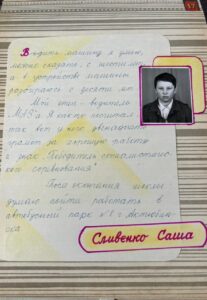 17
Водить машину я умею,
можно сказать, с шести лет,
а в устройстве машины
разбираюсь с десяти лет.
Мой отец - водитель
МАЗ-а. Я как-то посчитал -
так вот у него двенадцать
грамот за хорошую работу
и знак „Победитель социалистичес-
кого соревнования“.
После окончания школы
думаю пойти работать в
автобусный парк №1 г. Актюбин-
ска
Сливенко Саша